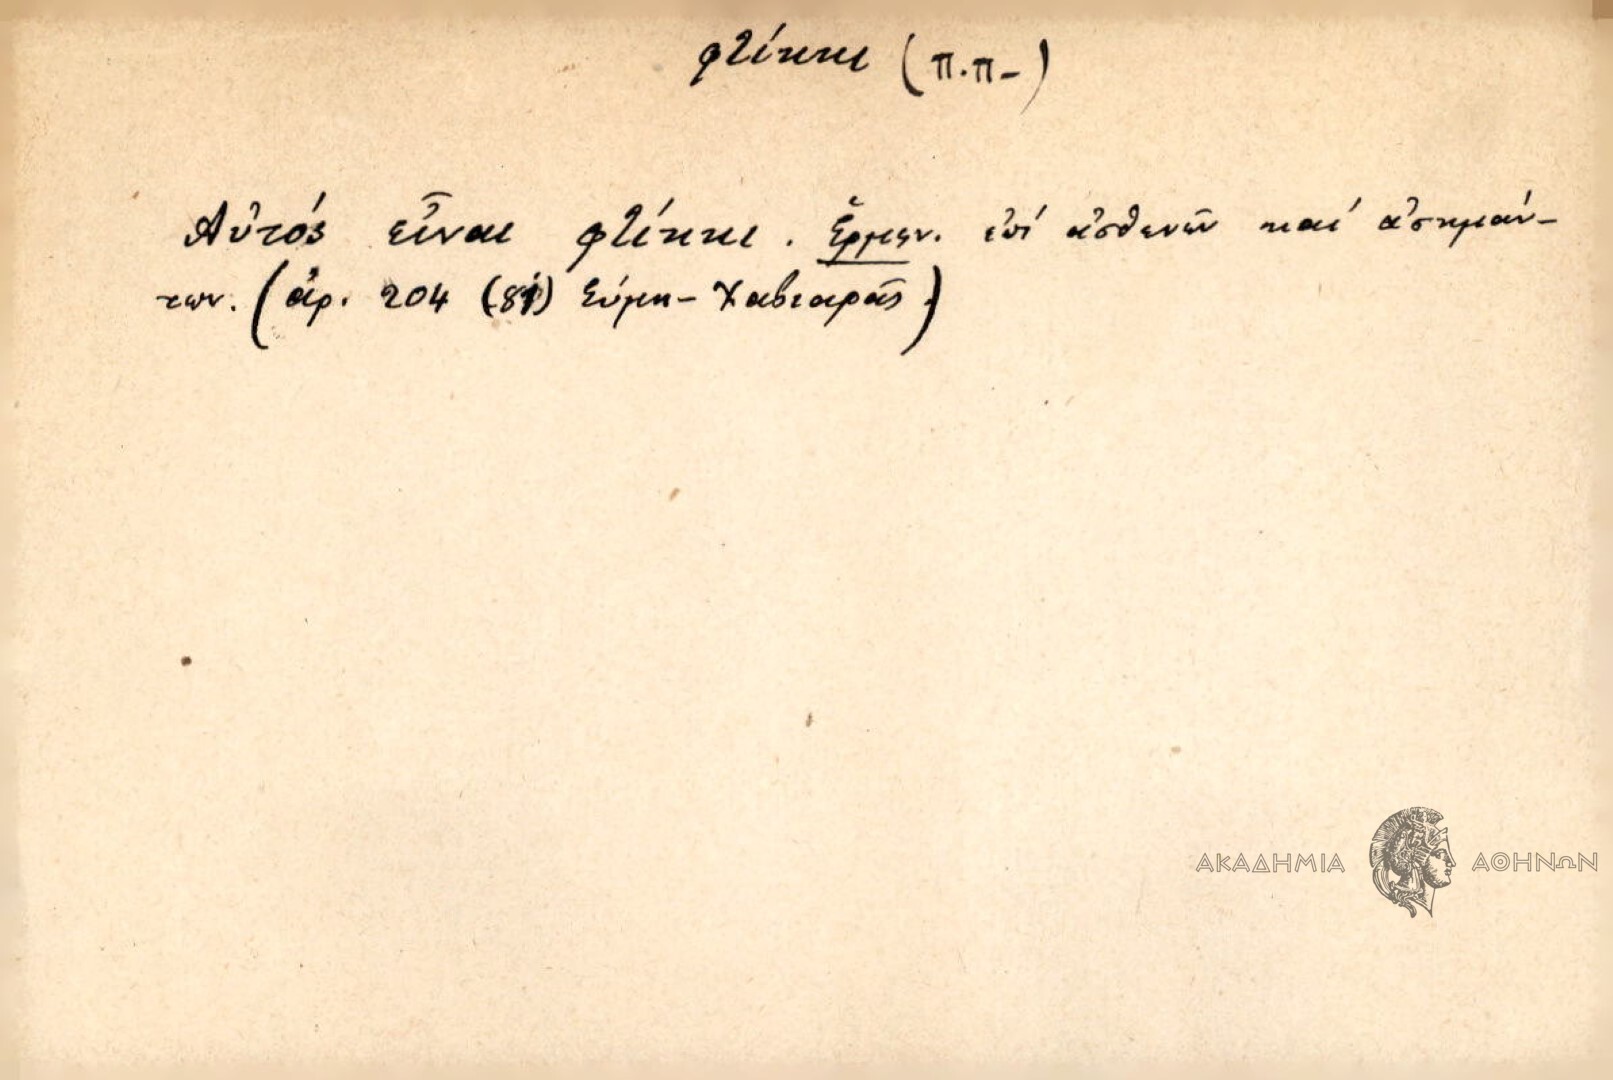 φτίκκι (π.π-)
Αὐτός εἶναι φτίκκι. Ἑρμην. ἐπί ἀσθενῶν καί ἀσημάν-
των. (ἀρ. 204 (81) Σύμη- Χαβιαρᾶς.)
ΑΚΑΔΗΜΙΑ ΑΘΗΝΩΝ